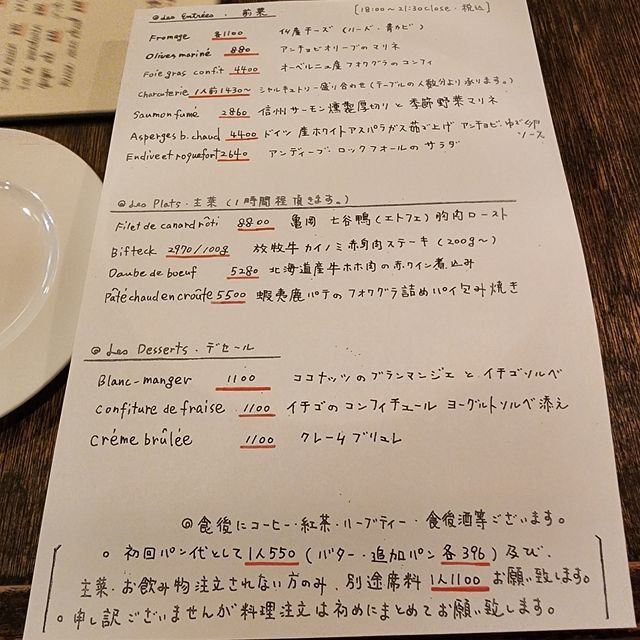 @ Les Entrées. 前菜 [18:00～21:30close・税込]
Fromage 各1100 仏産チーズ (ハード・青カビ)
Olives mariné 880 アンチョビオリーブのマリネ
Foie gras confit 4400 オーベルニュ産フォワグラのコンフィ
Charcuterie 1人前1430～ シャルキュトリー盛り合わせ (テーブルの人数分より承ります。)
Saumon fume 2860 信州サーモン燻製厚切りと季節野菜マリネ
Asperges b. chaud 4400 ドイツ産ホワイトアスパラガス茹で上げ アンチョビ・ゆで卵
ソース
Endive et roquefort 2640 アンディーブ・ロックフォールのサラダ
@ Les Plats・主菜 (1時間程頂きます。)
Filet de canard rôti 8800 亀岡 七谷鴨(エトフェ)胸肉ロースト
Bifteck 2970/100g 放牧牛カイノミ赤身肉ステーキ (200g～)
Daube de boeuf 5280 北海道産牛ホホ肉の赤ワイン煮込み
Pâté chaud en croûte 5500 蝦夷鹿パテのフォワグラ詰めパイ包み焼き
@ Les Desserts・デセール
Blanc-manger 1100 ココナッツのブランマンジェとイチゴソルベ
Confiture de fraise 1100 イチゴのコンフィチュール ヨーグルトソルベ添え
Créme brûlée 1100 クレームブリュレ
@ 食後にコーヒー・紅茶・ハーブティー・食後酒等ございます。
○ 初回パン代として1人550 (バター・追加パン各396) 及び、
主菜・お飲み物注文されない方のみ、別途席料1人1100お願い致します。
○ 申し訳ございませんが料理注文は初めにまとめてお願い致します。